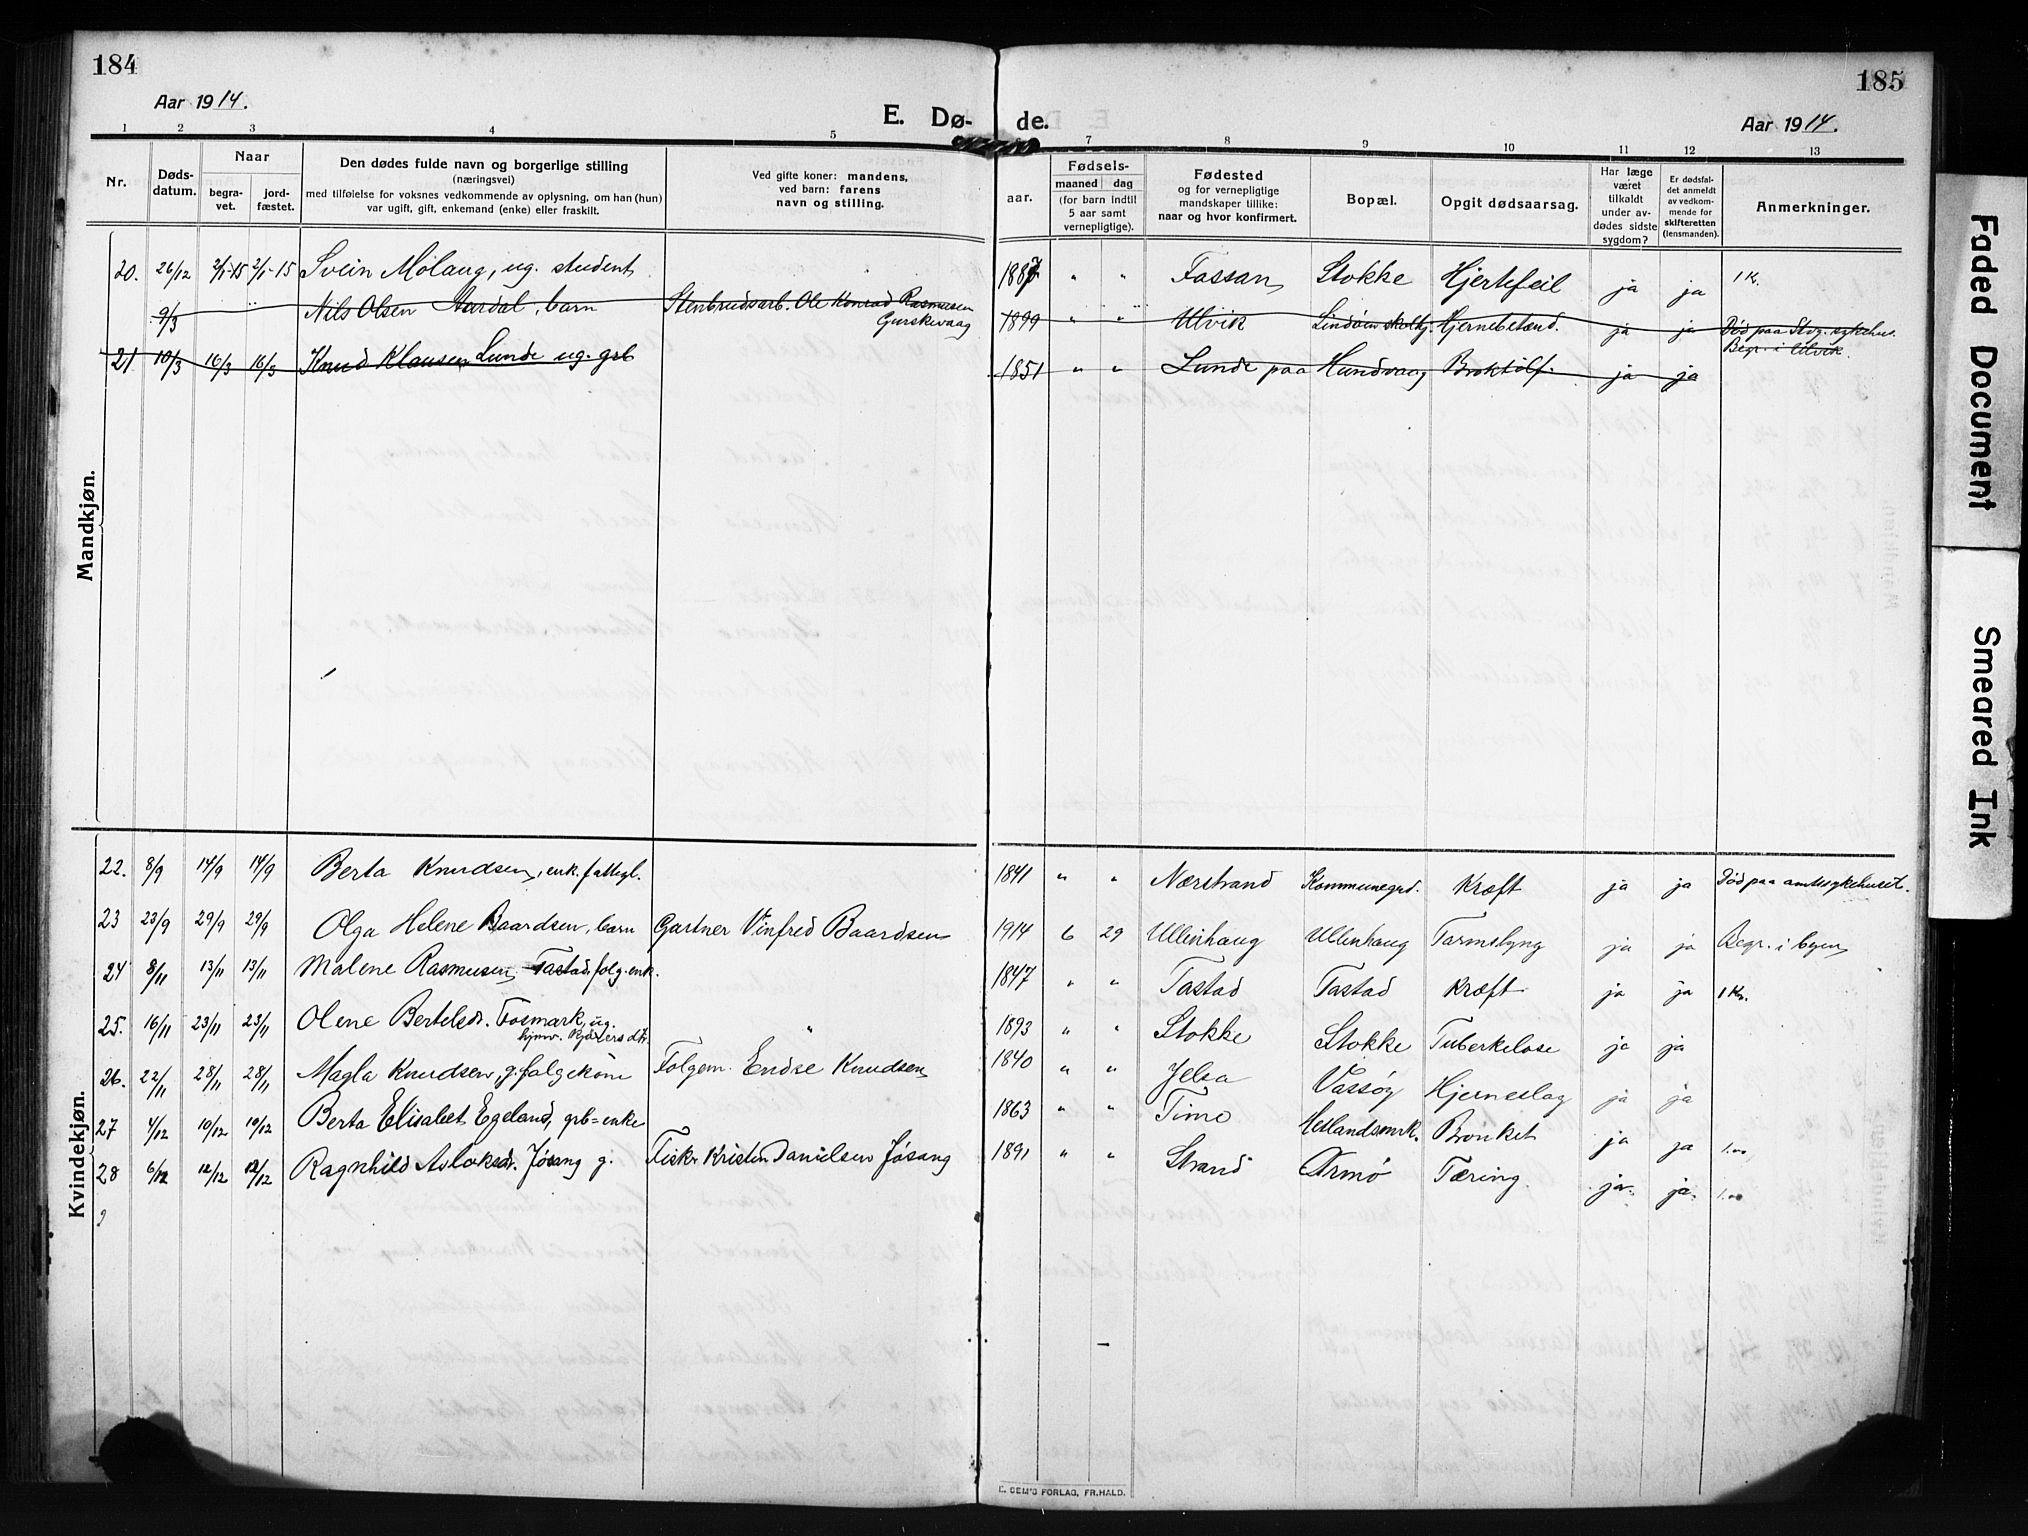 184
185
Aar 1914.
E. Dø-
de.
Aar 1914.
1 2 3 4 5 7 8 9 10 11 12 13
Nr.
Døds-
datum.
Naar
begra-
vet.
jord-
fæstet.
Den dødes fulde navn og borgerlige stilling
(næringsvei)
med tilføielse for voksnes vedkommende av oplysning, om han (hun)
var ugift, gift, enkemand (enke) eller fraskilt.
Ved gifte koner: mandens,
ved barn: farens
navn og stilling.
Fødsels-
aar.
maaned dag
(for barn indtil
5 aar samt
vernepligtige).
Fødested
og for vernepligtige
mandskaper tillike:
naar og hvor konfirmert.
Bopæl.
Opgit dødsaarsag.
Har læge
været
tilkaldt
under av-
dødes sidste
sygdom?
Er dødsfal-
det anmeldt
av vedkom-
mende for
skifteretten
(lensmanden).
Anmerkninger.
Mandkjøn.
20. 26/12 2/1-15 2/1-15 Svein Mølaug, ug. student 1887 " " Fossan Stokke Hjertefeil ja ja 1 Kr.
9/3 Nils Olsen Aardal, barn Stenbrudsarb. Ole Konrad Rasmusen
Gurskevaag
1899 " " Ulvik Hjernebetænd. ja ja Død paa Stvg. sykehus.
Begr. i Ulvik.
21 10/3 16/3 16/3 Knud Klausen Lunde ug. grb 1851 " " Lunde paa Hundvaag ja ja
Kvindekjøn.
22. 8/9 14/9 14/9 Berta Knudsen, enk. fattigl. 1841 " " Nærstrand Kommunegrd. Kræft ja ja Død paa amtssykehuset.
23 23/9 29/9 29/9 Olga Helene Baardsen, barn Gartner Vinfred Baardsen 1914 6 29 Ullenhaug Ullenhaug Tarmslyng ja ja Begr. i byen
24 8/11 13/11 13/11 Malene Rasmusen Tastad, folg. enk. 1847 " " Tastad Tastad Kræft ja ja 1 Kr.
25. 16/11 23/11 23/11 Olene Bertelsdr. Fosmark, ug. " 1893 " " Stokke Stokke Tuberkelose ja ja
26. 22/11 28/11 28/11 Magla Knudsen, g. folgekone Folgem. Endre Knudsen 1840 " " Jelsa Vassøy Hjerneslag ja ja
27 4/12 10/12 10/12 Berta Elisabet Egeland, grb=enke 1863 " " Time Hetlandsmrk. Bronket ja ja 1.00
28 6/12 12/12 12/12 Ragnhild Aslaksdr. Jøsang g. Fisker Kristen Danielsen Jøsang 1891 " " Strand Ormø Tæring. ja. ja. 1.00
E. SEM'S FORLAG, FR.HALD.
Faded Document
Smeared Ink